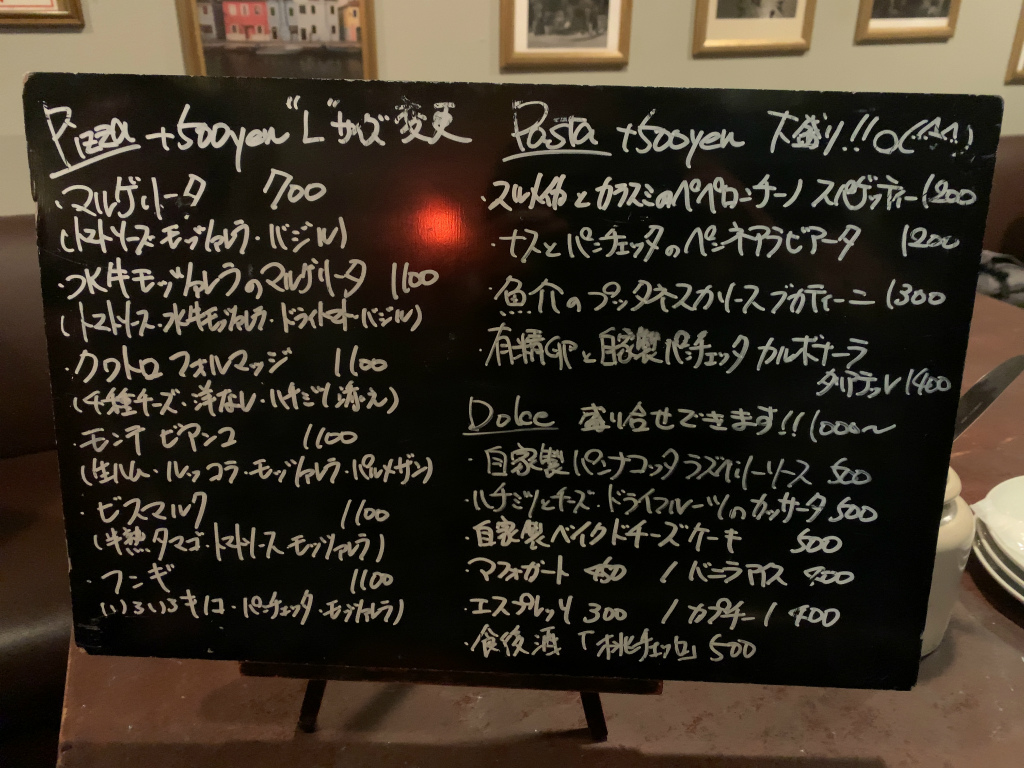 Pizza +500yen "L"サイズ変更
・マルゲリータ 700
(トマトソース・モッツァレラ・バジル)
・水牛モッツァレラのマルゲリータ 1100
(トマトソース・水牛モッツァレラ・ドライトマト・バジル)
・クワトロ フォルマッジ 1100
(4種チーズ・洋なし・ハチミツ添え)
・モンテ ビアンコ 1100
(生ハム・ルッコラ・モッツァレラ・パルメザン)
・ビスマルク 1100
(半熟タマゴ・トマトソース・モッツァレラ)
・フンギ 1100
(いろいろキノコ・パンチェッタ・モッツァレラ)
Pasta +500yen 大盛り!!○(^^)
・スルメイカとカラスミのペペロンチーノ スパゲッティー 1200
・ナスとパンチェッタのペンネアラビアータ 1200
・魚介のプッタネスカソース ブカティーニ 1300
・有精卵と自家製パンチェッタ カルボナーラ
タリアテッレ 1400
Dolce 盛り合せできます!! 1000〜
・自家製パンナコッタ ラズベリーソース 500
・ハチミツとチーズ・ドライフルーツのカッサータ 500
・自家製ベイクドチーズケーキ 500
・アフォガート 450 / バニラアイス 400
・エスプレッソ 300 / カプチーノ 400
・食後酒「桃チェッロ」 500